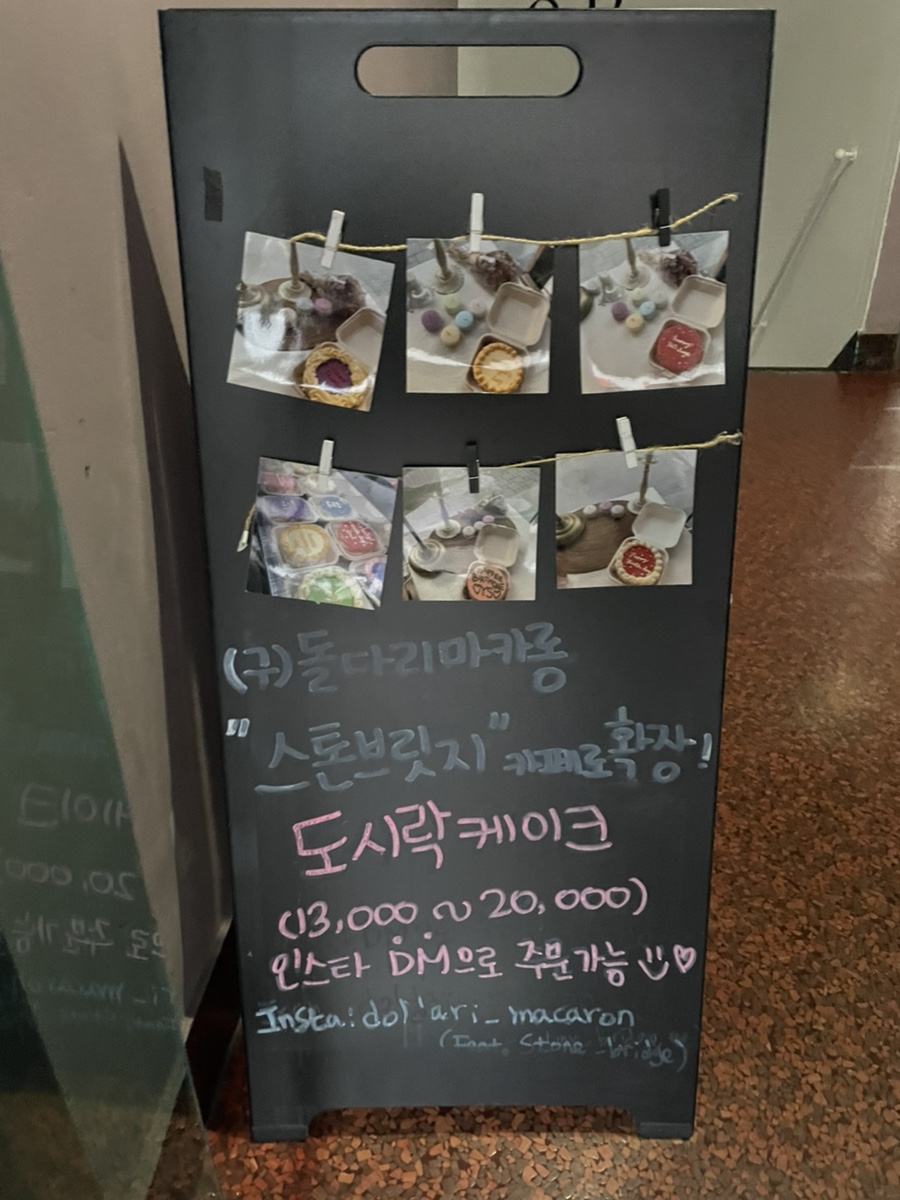 (구)돌다리마카롱
"스톤브릿지" 카페로 확장!
도시락케이크
(13,000 ~ 20,000)
인스타 DM으로 주문가능
Insta:
macaron
Stone _bridge)